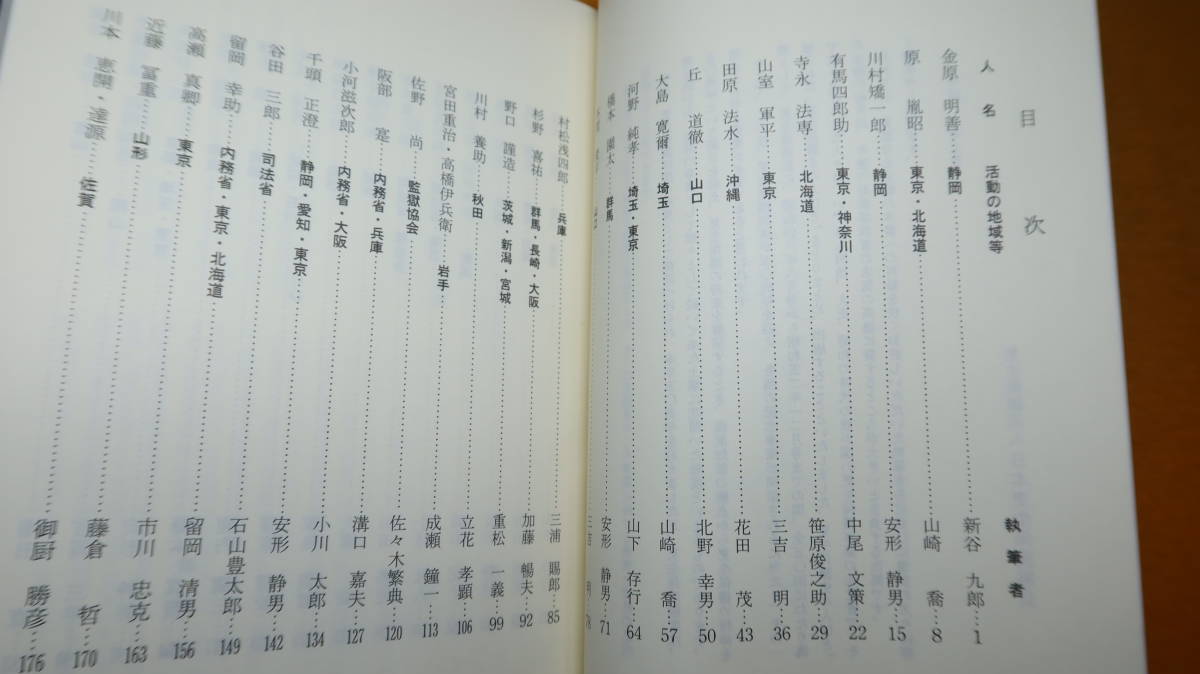 目次
人名 活動の地域等 執筆者
金原 明善 静岡 新谷 九郎 1
原 胤昭 東京・北海道 山崎 喬 8
川村矯一郎 静岡 安形 静男 15
有馬四郎助 東京・神奈川 中尾 文策 22
寺永 法専 北海道 笹原俊之助 29
山室 軍平 東京 三吉 明 36
田原 法水 沖縄 花田 茂 43
丘 道徹 山口 北野 幸男 50
大島 寛爾 埼玉 山崎 喬 57
河野 純孝 埼玉・東京 山下 存行 64
橋本 太 群馬 安形 静男 71
三吉 明 78
村松浅四郎 兵庫 三浦 賜郎 85
杉野 喜祐 群馬・長崎・大阪 加藤 暢夫 92
野口 謹造 茨城・新潟・宮城 重松 一義 99
川村 養助 秋田 立花 孝顕 106
宮田重治・高橋伊兵衛 岩手 成瀬 鐘一 113
佐野 尚 監獄協会 佐々木繁典 120
阪部 寔 内務省・兵庫 溝口 嘉夫 127
小河滋次郎 内務省・大阪 小川 太郎 134
千頭 正澄 静岡・愛知・東京 安形 静男 142
谷田 三郎 司法省 石山豊太郎 149
留岡 幸助 内務省・東京・北海道 留岡 清男 156
高瀬 真卿 東京 市川 忠克 163
近藤 冨重 山形 藤倉 哲 170
川本 恵開・達源 佐賀 御厨 勝彦 176